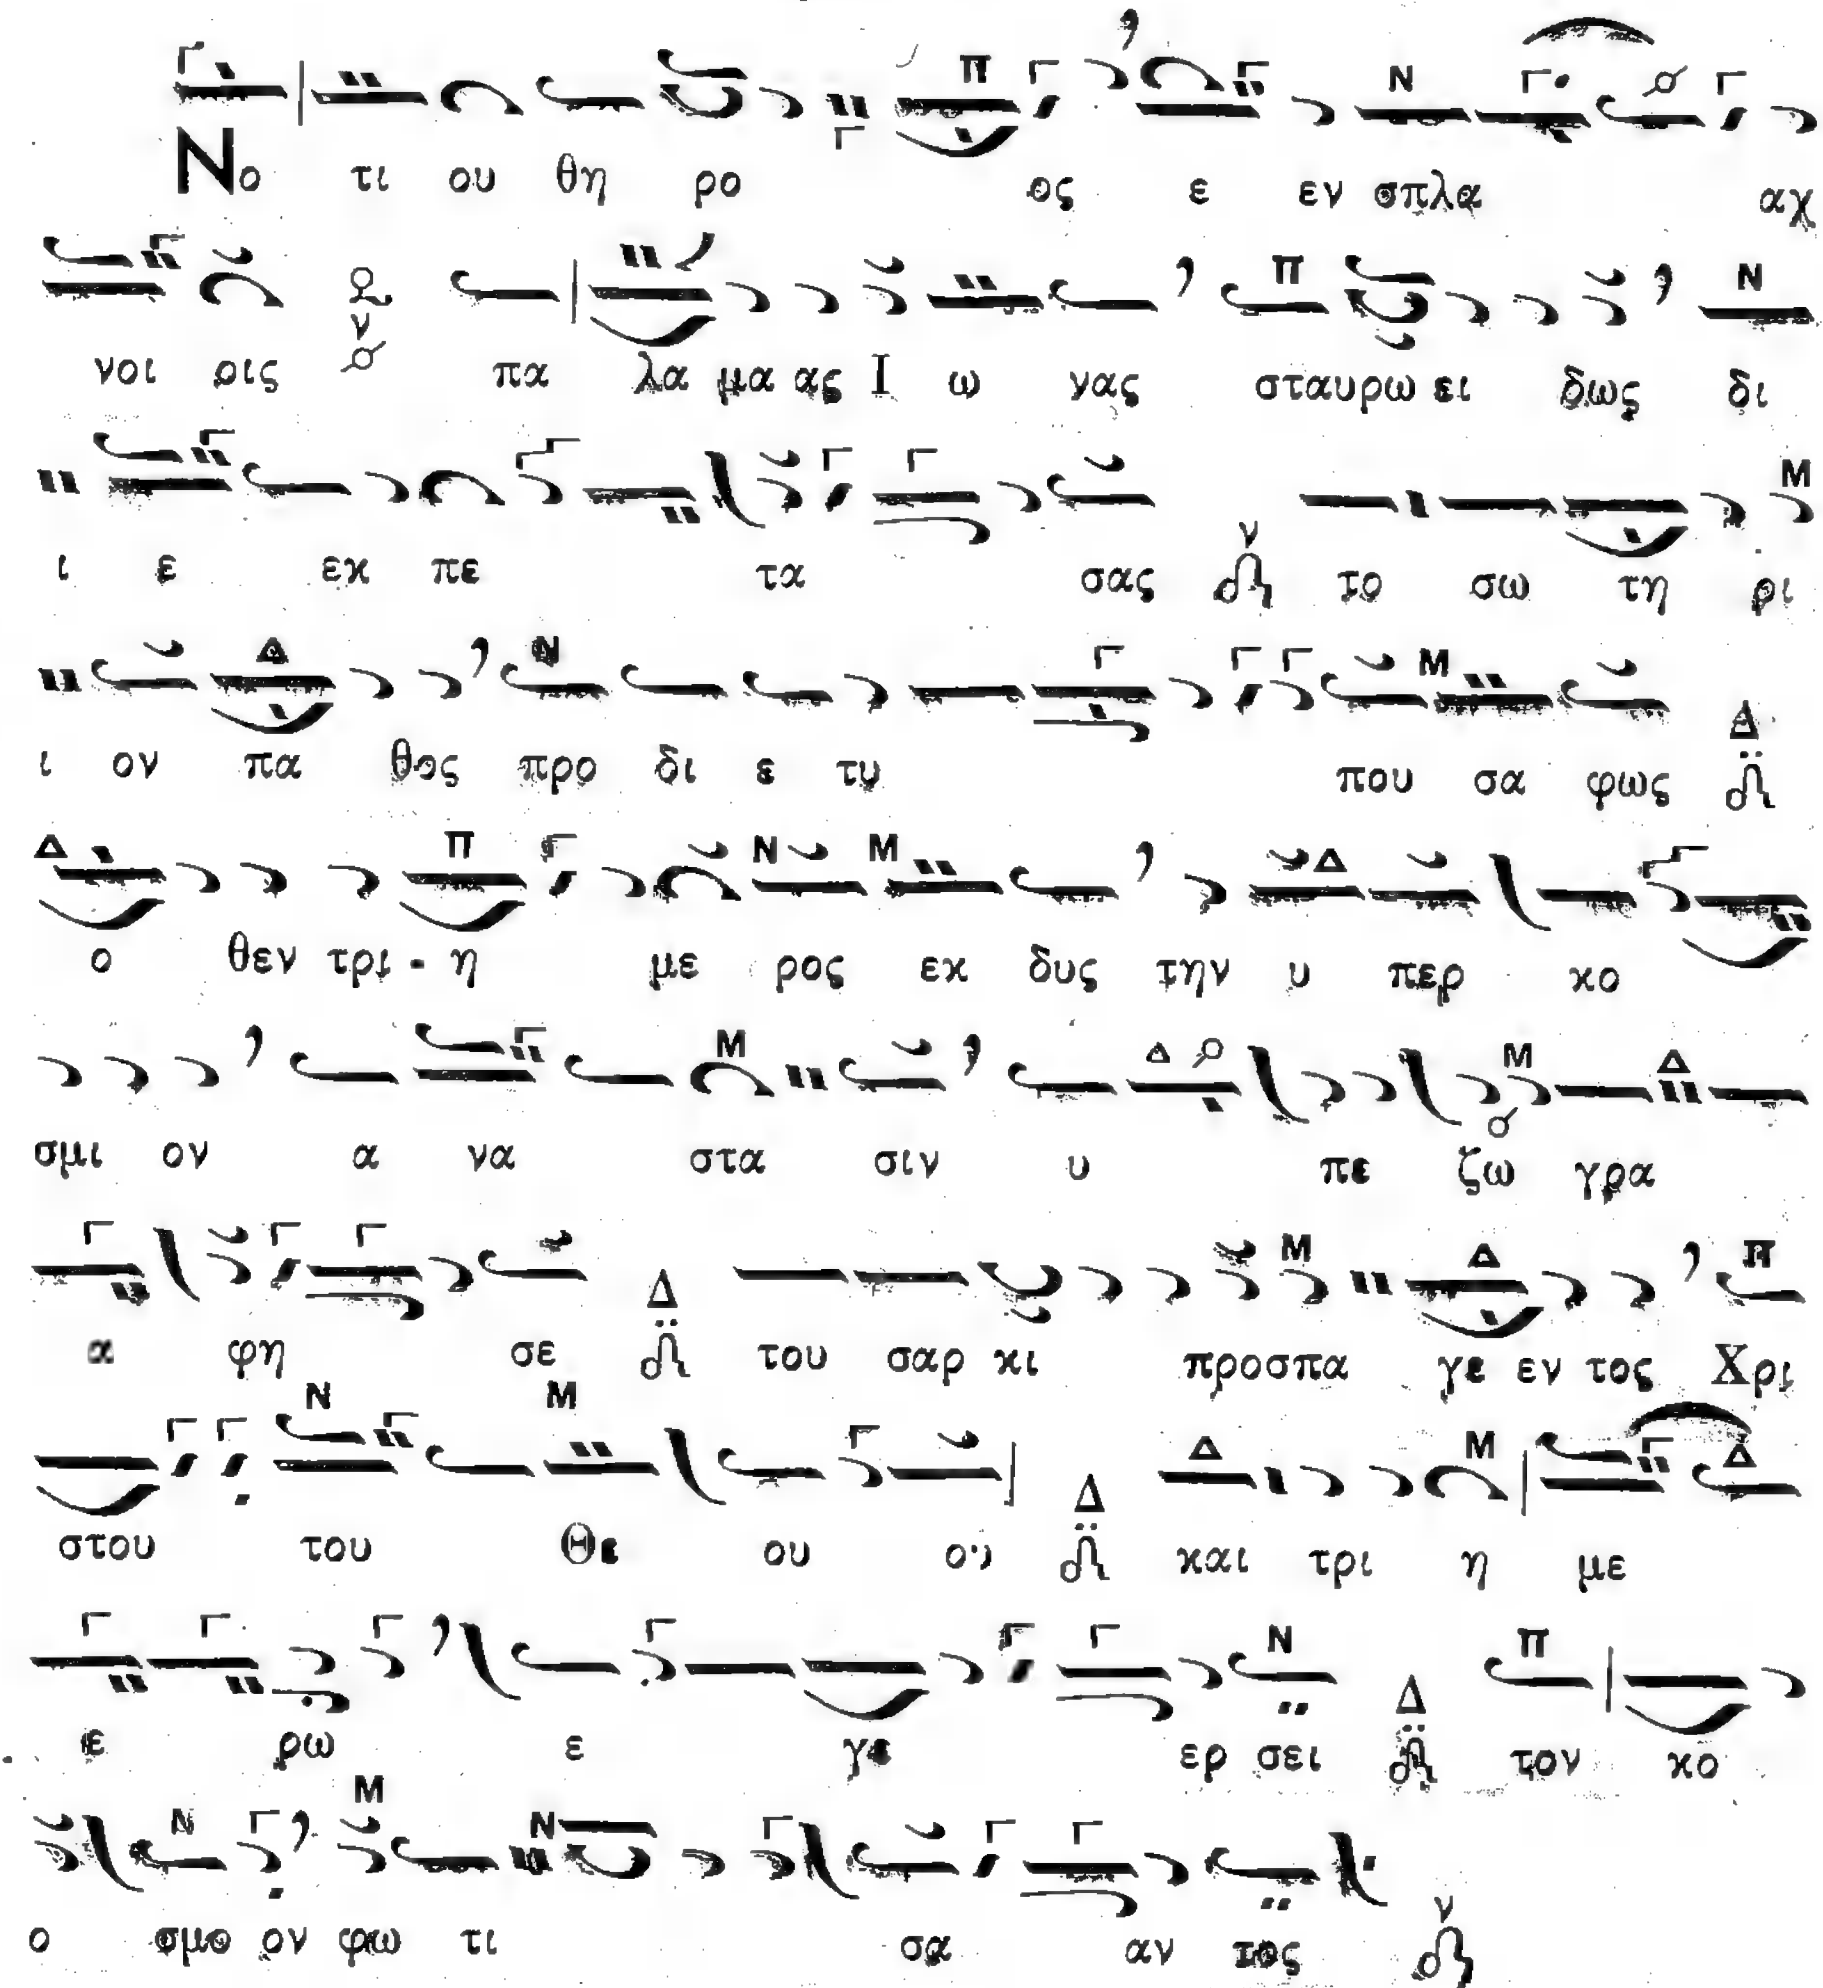 Νο τι ου θη ρο ος ε εν σπλα αχ
νοι ρις πα λα μα ας Ι ω νας σταυρω ει δως δι
ι ε εκ πε τα σας το σω τη ρι
ι ον πα θος προ δι ε τυ που σα φως
ο θεν τρι - η με ρος εκ δυς την υ περ κο
σμι ον α να στα σιν υ πε ζω γρα
α φη σε του σαρ κι προσπα γε εν τος Χρι
στου του Θε ου ου και τρι η με
ε ρω ε γε ερ σει τον κο
ο σμο ον φω τι σα αν τος